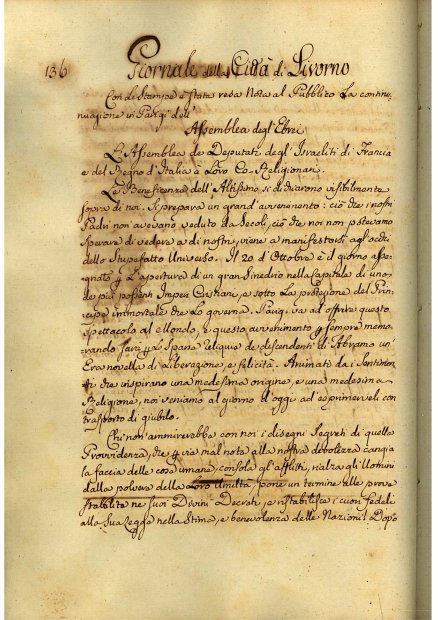 136
Giornale della Città di Livorno
Con le Stampe è stata resa Nota al Pubblico La conti-
nuazione in Parigi dell'
Assemblea degl'Ebrei
L'Assemblea de Deputati degl'Israeliti di Francia
e del Regno d'Italia à Loro Co-Religionari.
Le Beneficenze dell'Altissimo si dichiarono visibilmente
sopra di noi. Si prepara un grand'avvenimento: ciò che i nostri
Padri non avevano veduto da Secoli, ciò che noi non potevamo
sperare di vedere a dì nostri, viene a manifestarsi agl'occhi
dello Stupefatto Universo. Il 20 d'Ottobre è il giorno asse-
gnato p. L'apertura di un gran Sinedrio nella Capitale di uno
de più possenti Imperi Cristiani, e sotto La protezione del Prin-
cipe immortale che Lo governa. Parigi va ad offrire questo
Spettacolo al Mondo, e questo avvenimento p. sempre memo-
rando sarà p. le sparse reliquie de discendenti di Abramo un'
Era novella di Liberazione, e felicità. Animati da i Sentimen-
ti che inspirano una medesima origine, e una medesima
Religione, noi veniamo al giorno d'oggi ad esprimerveli con
trasporto di giubilo.
Chi non ammirerebbe con noi i disegni Segreti di quella
Provvidenza, che p. vie mal note alla nostra debolezza cangia
la faccia delle cose umane, consola gl'afflitti, rialza gl'Uomini
dalla polvere della Loro Umiltà, pone un termine alle prove
stabilite ne suoi Divini Decreti, e ristabilisce i cuori fedeli
alla Sua Legge nella Stima, e benevolenza delle Nazioni? Dopo